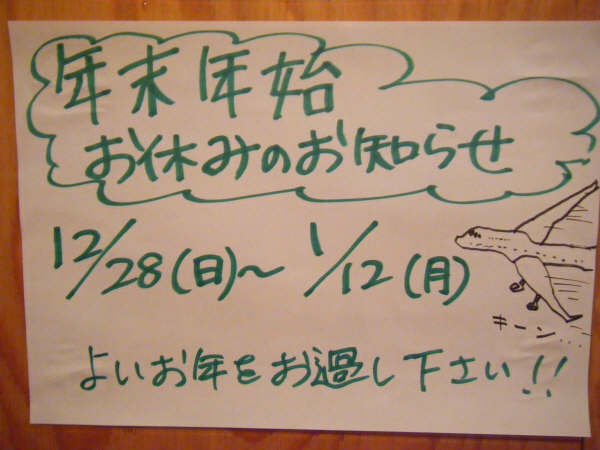 年末年始
お休みのお知らせ
12/28(日)〜 1/12(月)
キーン...
よいお年をお過し下さい!!